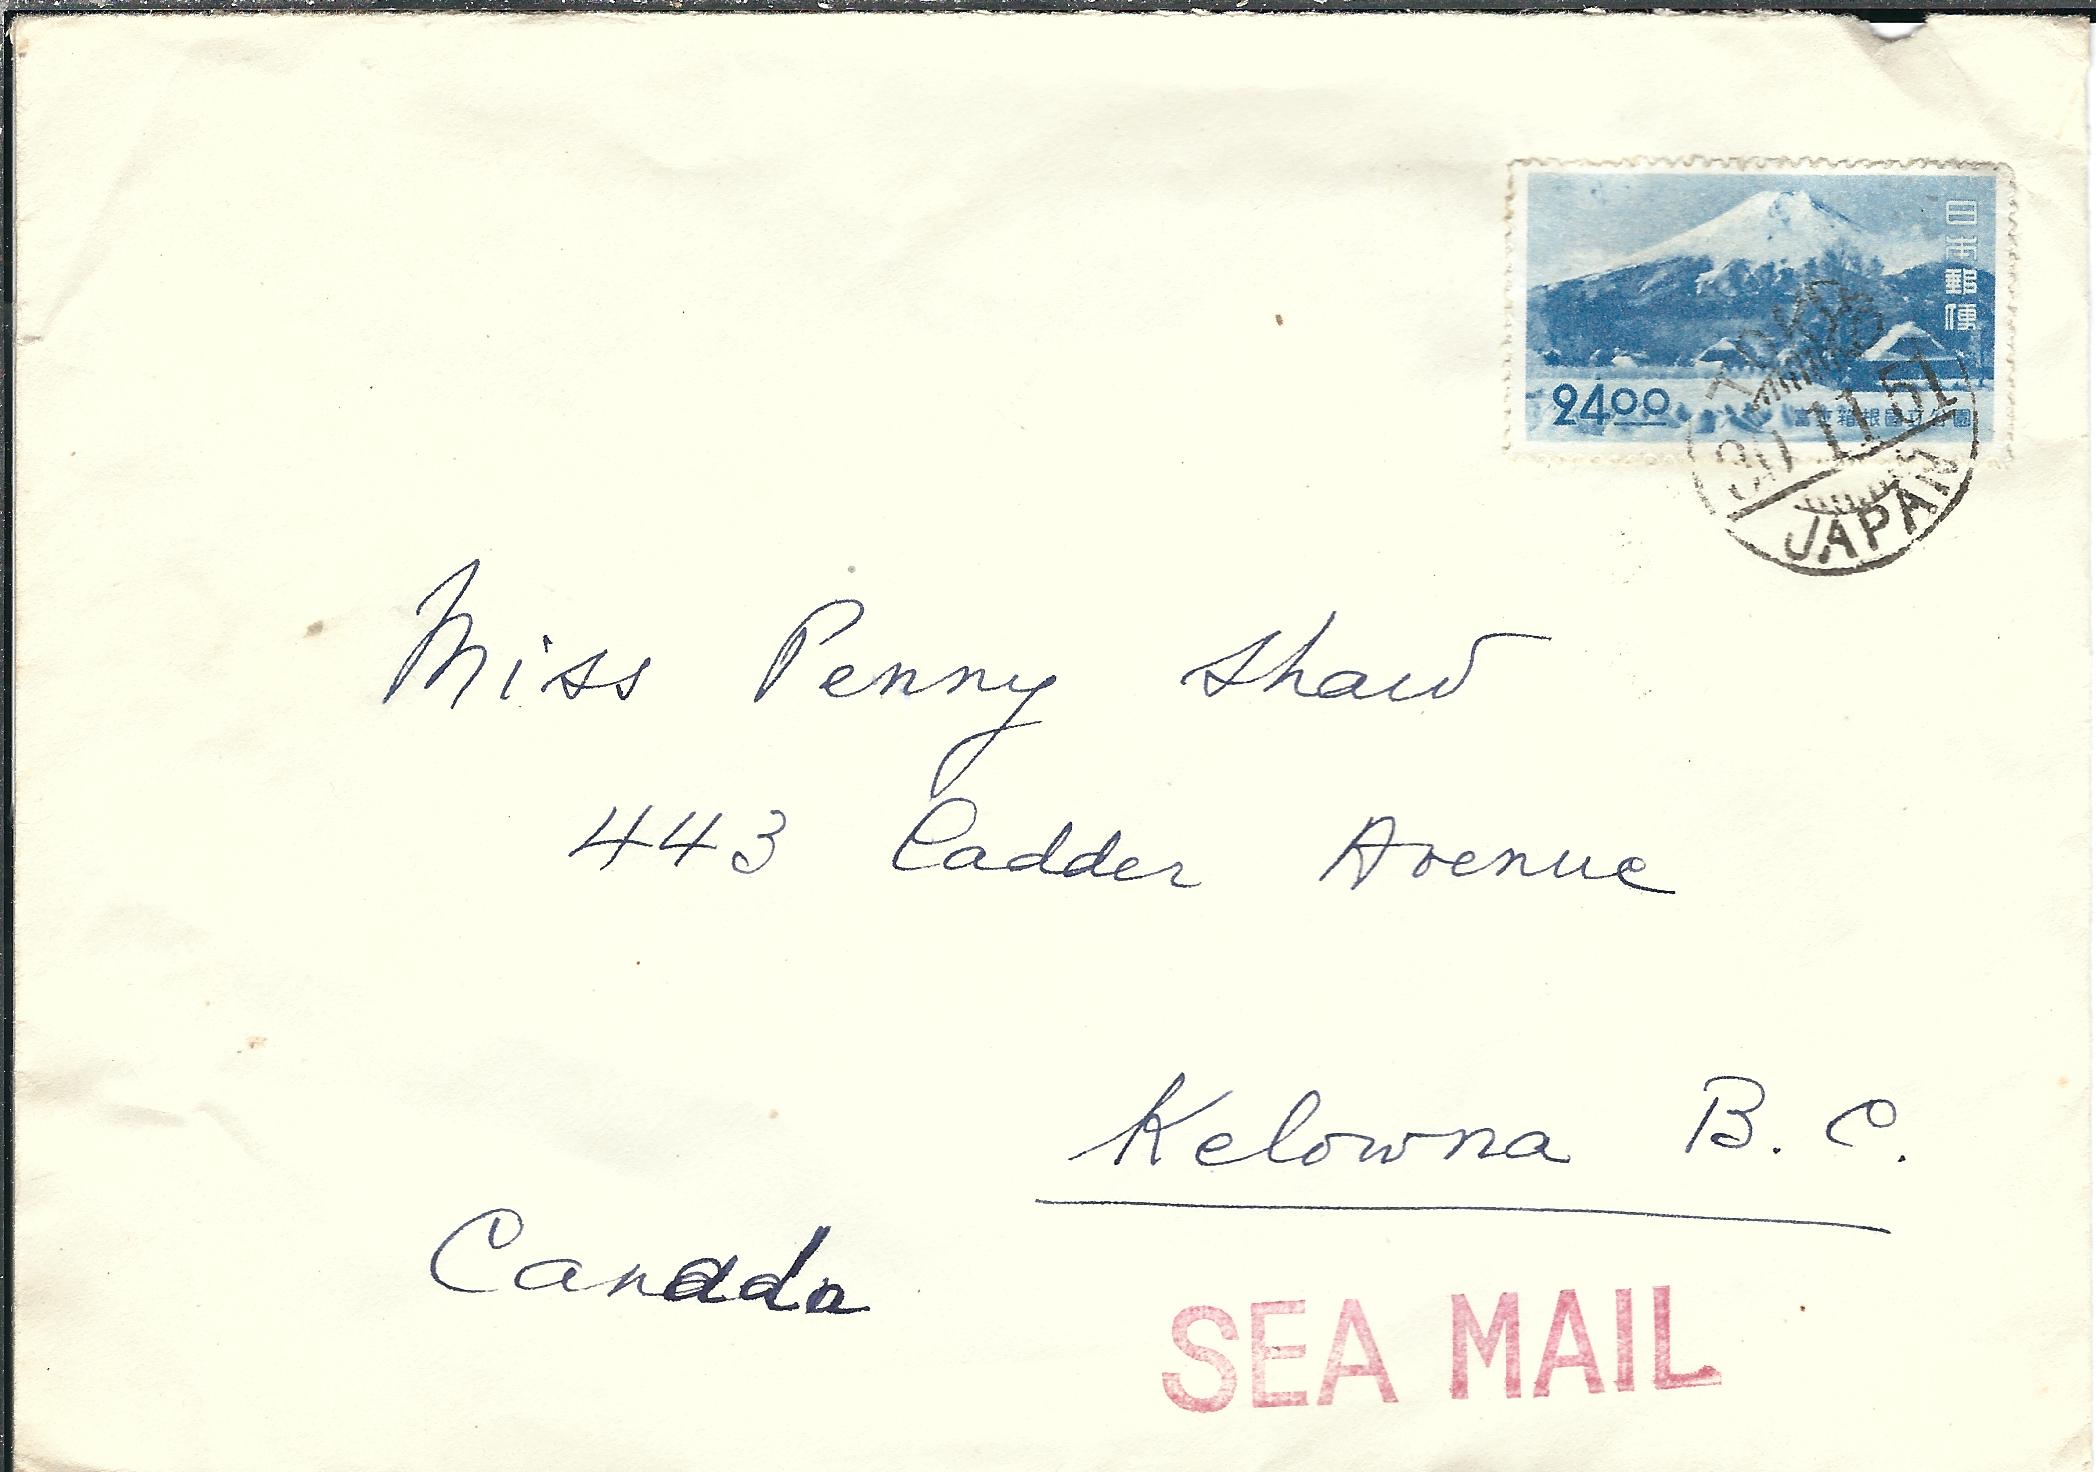 日本郵便
24.00
富士箱根國立公園
TOKYO
30.11.51
JAPAN
Miss Penny Shaw
443 Cadder Avenue
Kelowna B.C.
Canada
SEA MAIL